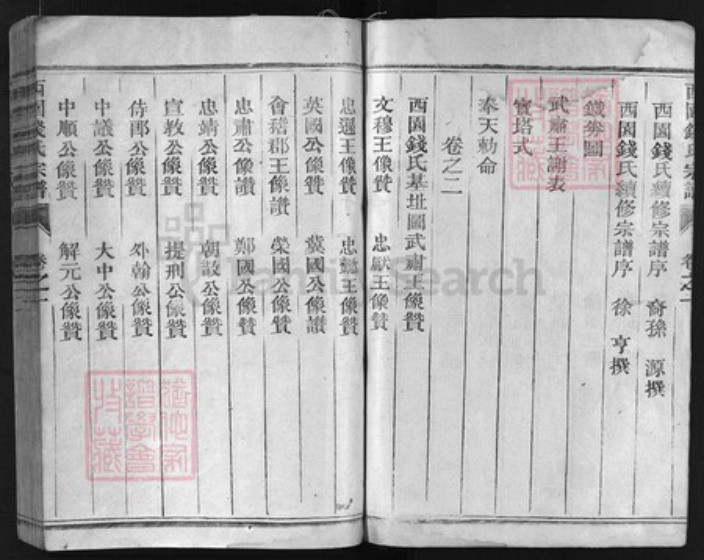 西園錢氏續修宗譜序 裔孫 源撰
西園錢氏續修宗譜序 徐 亨撰
鐵券圖
武肅王謝表
寶塔式
奉天勅命
卷之二
西園錢氏基址圖武肅王像贊
文穆王像贊 忠獻王像贊
忠遜王像贊 忠懿王像贊
英國公像贊 冀國公像讃
會稽郡王像讃 榮國公像贊
忠肅公像讃 鄭國公像贊
忠靖公像贊 朝議公像贊
宣教公像贊 提刑公像贊
侍郎公像贊 外翰公像贊
中議公像贊 大中公像贊
中順公像贊 解元公像贊
西園錢氏宗譜 卷之一
FamilySearch